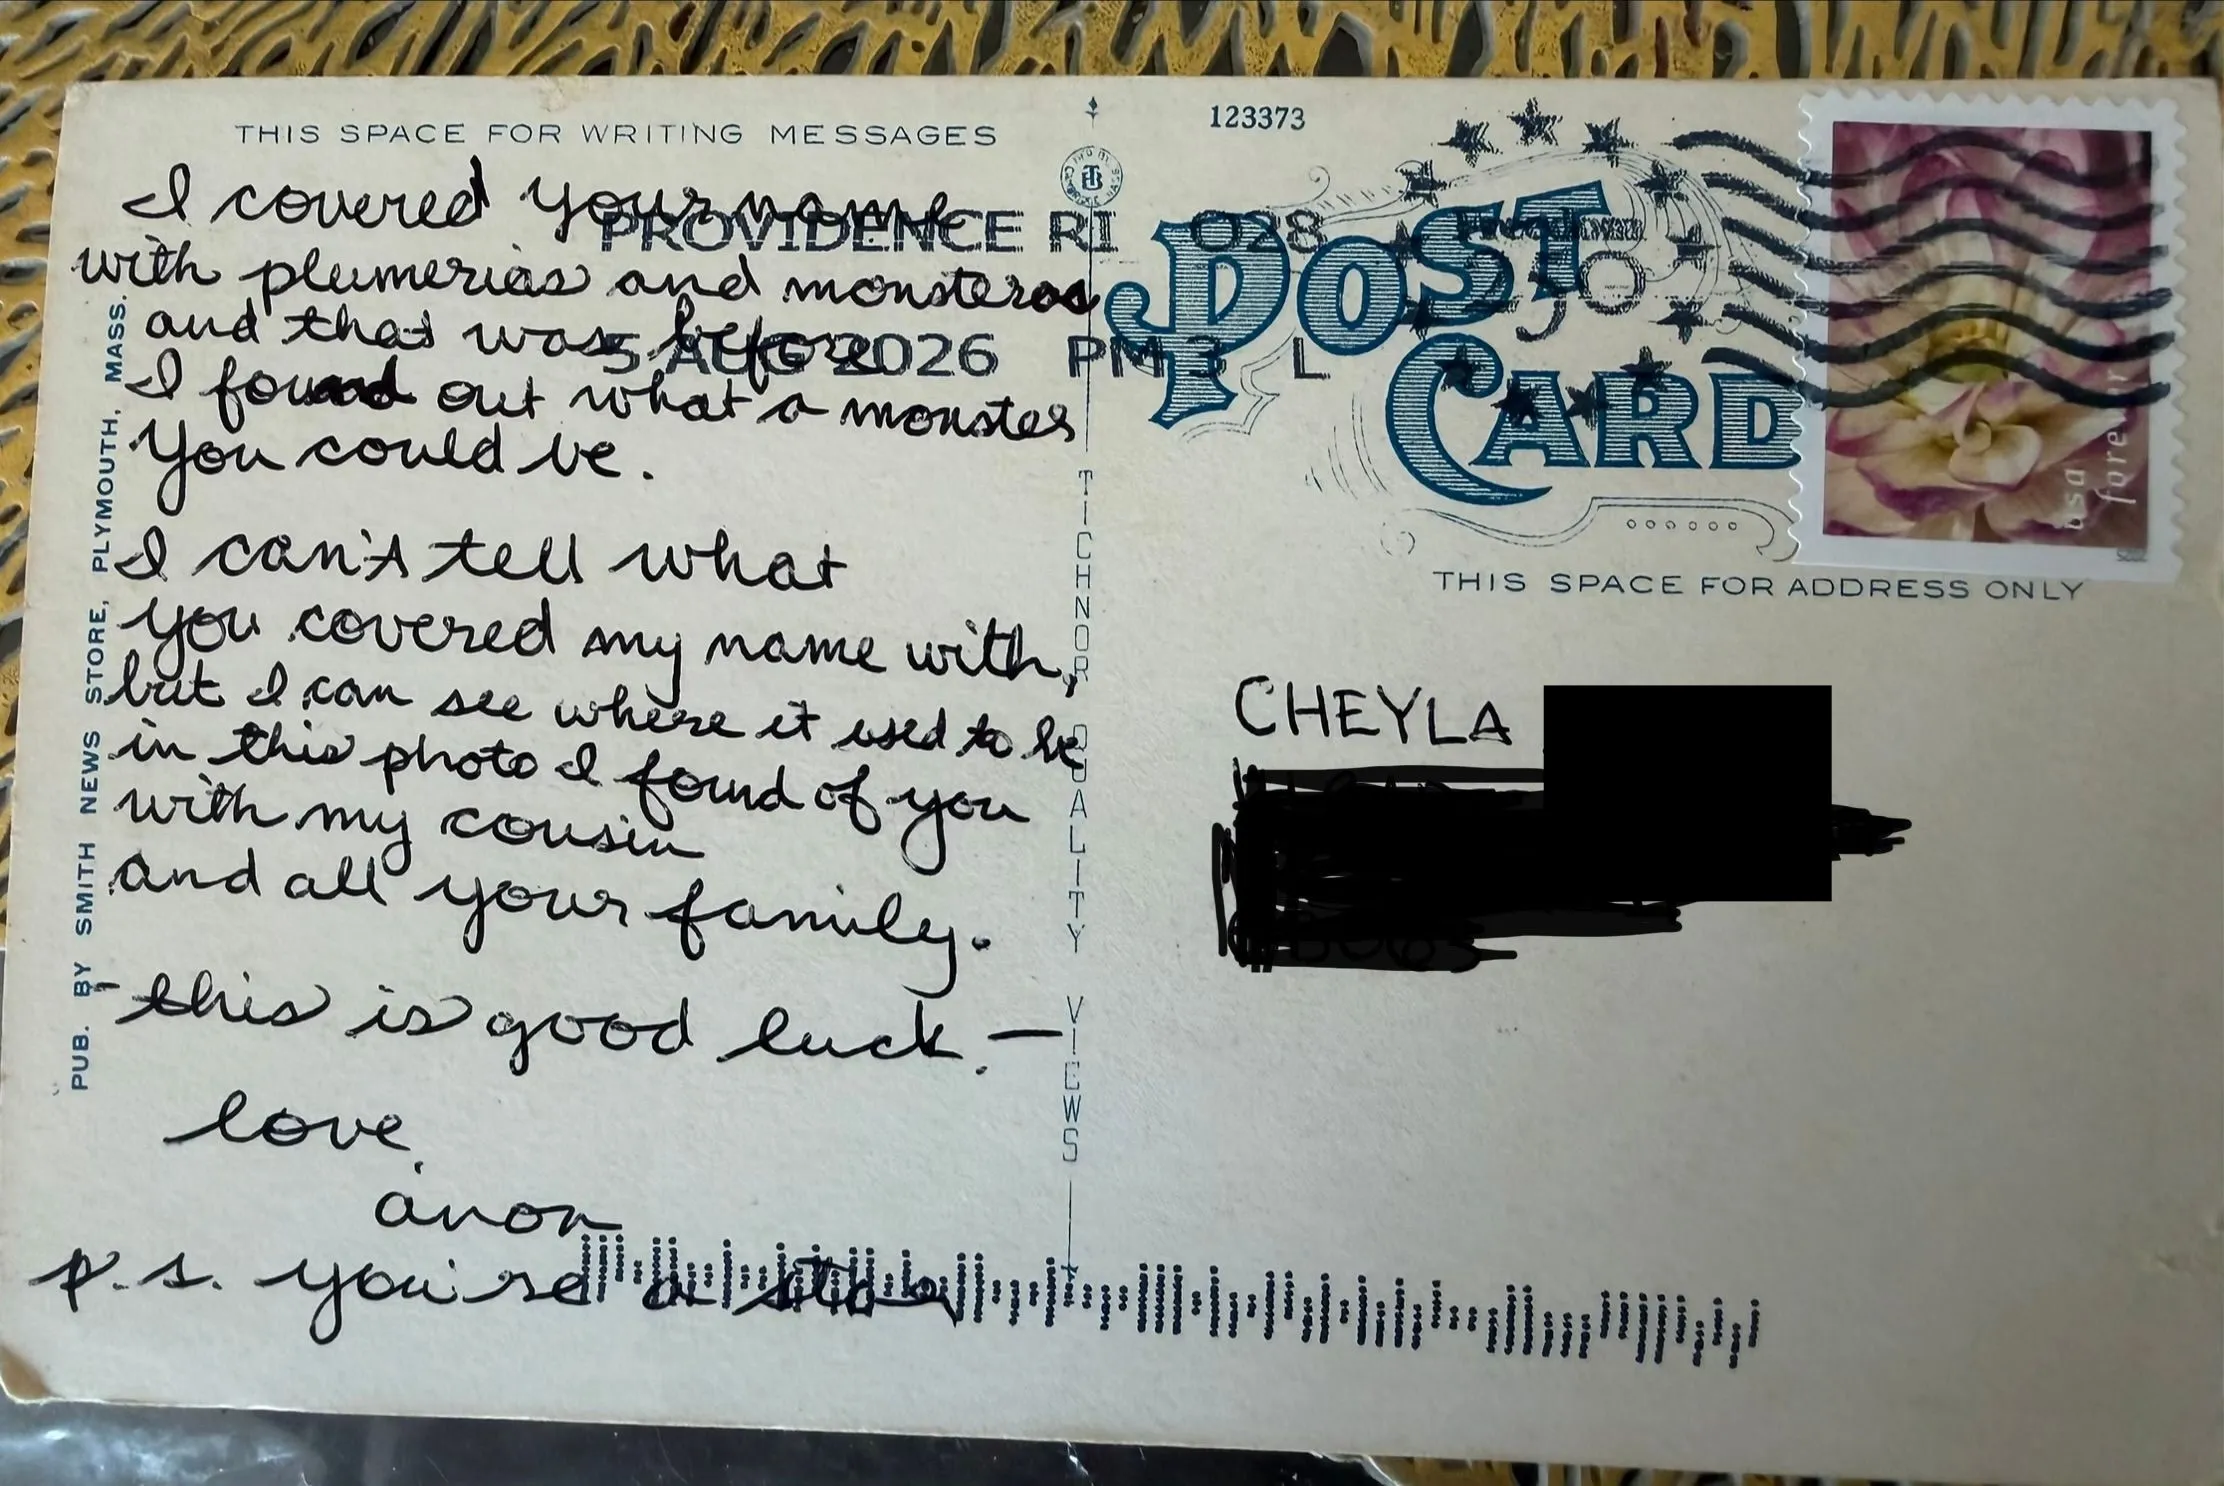 THIS SPACE FOR WRITING MESSAGES
I covered your name
with plumerias and monsteras
and that was before
I found out what a monster
you could be.
I can't tell what
you covered my name with,
but I can see where it used to be
in this photo I found of you
with my cousin
and all your family.
this is good luck. —
love,
anon
p.s. you're a star
PUB. BY SMITH NEWS STORE, PLYMOUTH, MASS.
TICHNOR QUALITY VIEWS
PROVIDENCE RI 028
5 AUG 2026 PM 3 L
123373
POST
CARD
Freedom
250
usa
forever
THIS SPACE FOR ADDRESS ONLY
CHEYLA